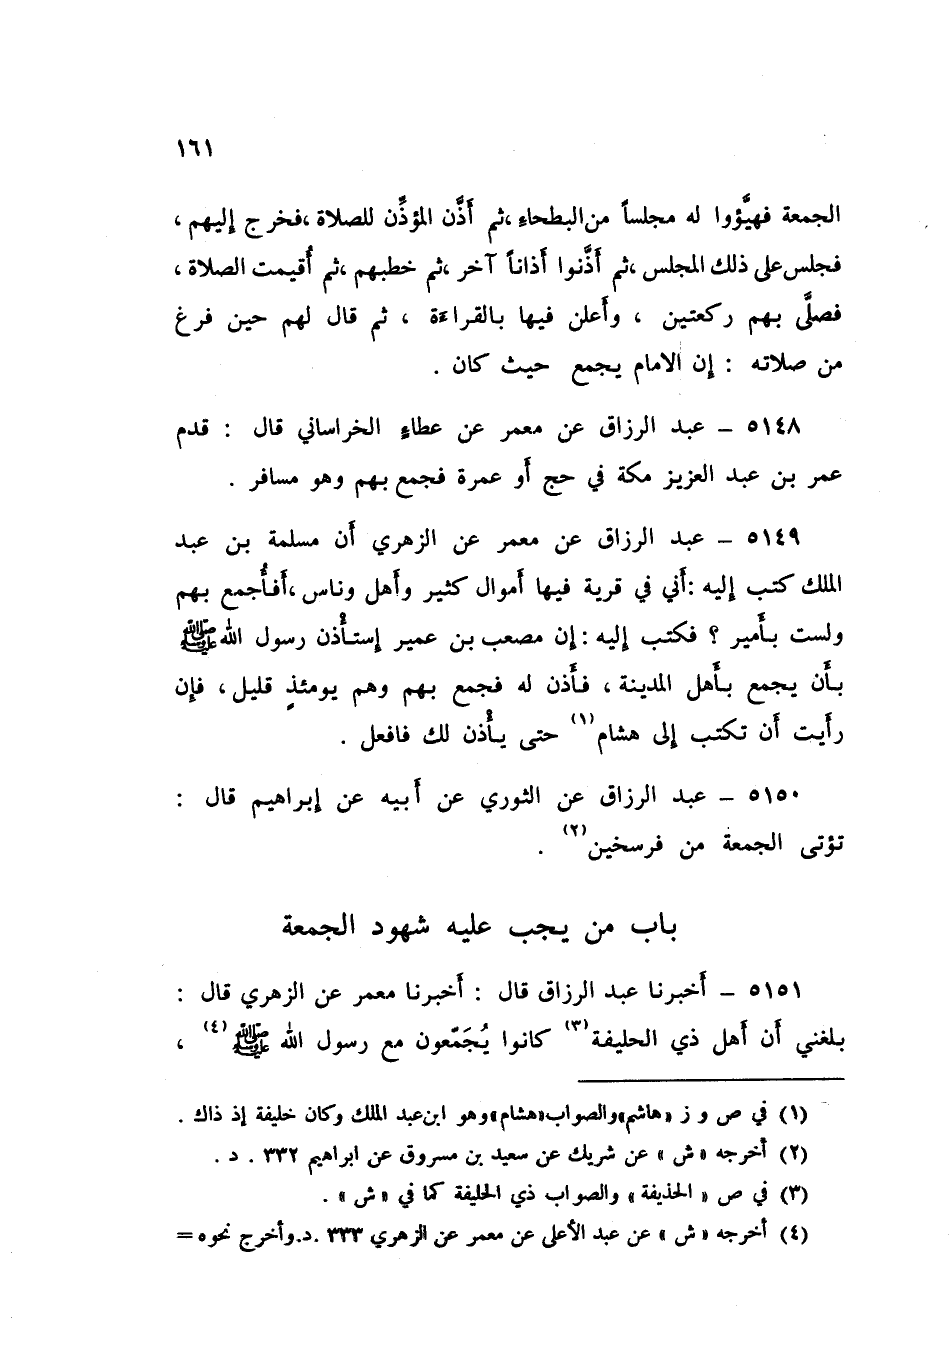 ١٦١
الجمعة فهيَّؤوا له مجلساً من البطحاء ، ثم أَذَّن المؤذِّن للصلاة ، فخرج إليهم ،
فجلس على ذلك المجلس ، ثم أَذَّنوا أذاناً آخر ، ثم خطبهم ، ثم أُقيمت الصلاة ،
فصلَّى بهم ركعتين ، وأَعلن فيها بالقراءة ، ثم قال لهم حين فرغ
من صلاته : إن الامام يجمع حيث كان .
٥١٤٨ – عبد الرزاق عن معمر عن عطاءٍ الخراساني قال : قدم
عمر بن عبد العزيز مكة في حج أَو عمرة فجمع بهم وهو مسافر .
٥١٤٩ – عبد الرزاق عن معمر عن الزهري أَن مسلمة بن عبد
الملك كتب إليه : أَني في قرية فيها أموال كثير وأَهل وناس ، أَفأُجمع بهم
ولست بأَمير ؟ فكتب إليه : إن مصعب بن عمير إستأْذن رسول الله ﷺ
بأَن يجمع بأَهل المدينة ، فأَذن له فجمع بهم وهم يومئذٍ قليل ، فإن
رأَيت أَن تكتب إلى هشام(١) حتى يأْذن لك فافعل .
٥١٥٠ – عبد الرزاق عن الثوري عن أَبيه عن إبراهيم قال :
تؤتى الجمعة من فرسخين(٢) .
باب من يجب عليه شهود الجمعة
٥١٥١ – أَخبرنا عبد الرزاق قال : أَخبرنا معمر عن الزهري قال :
بلغني أَن أَهل ذي الحليفة(٣) كانوا يُجَمّعون مع رسول الله ﷺ(٤) ،
(١) في ص و ز «هاشم» والصواب «هشام» وهو ابن عبد الملك وكان خليفة إذ ذاك .
(٢) أخرجه « ش » عن شريك عن سعيد بن مسروق عن ابراهيم ٣٣٢ . د .
(٣) في ص « الحذيفة » والصواب ذي الحليفة كما في « ش » .
(٤) أخرجه « ش » عن عبد الأعلى عن معمر عن الزهري ٣٣٣ .د.وأخرج نحوه =